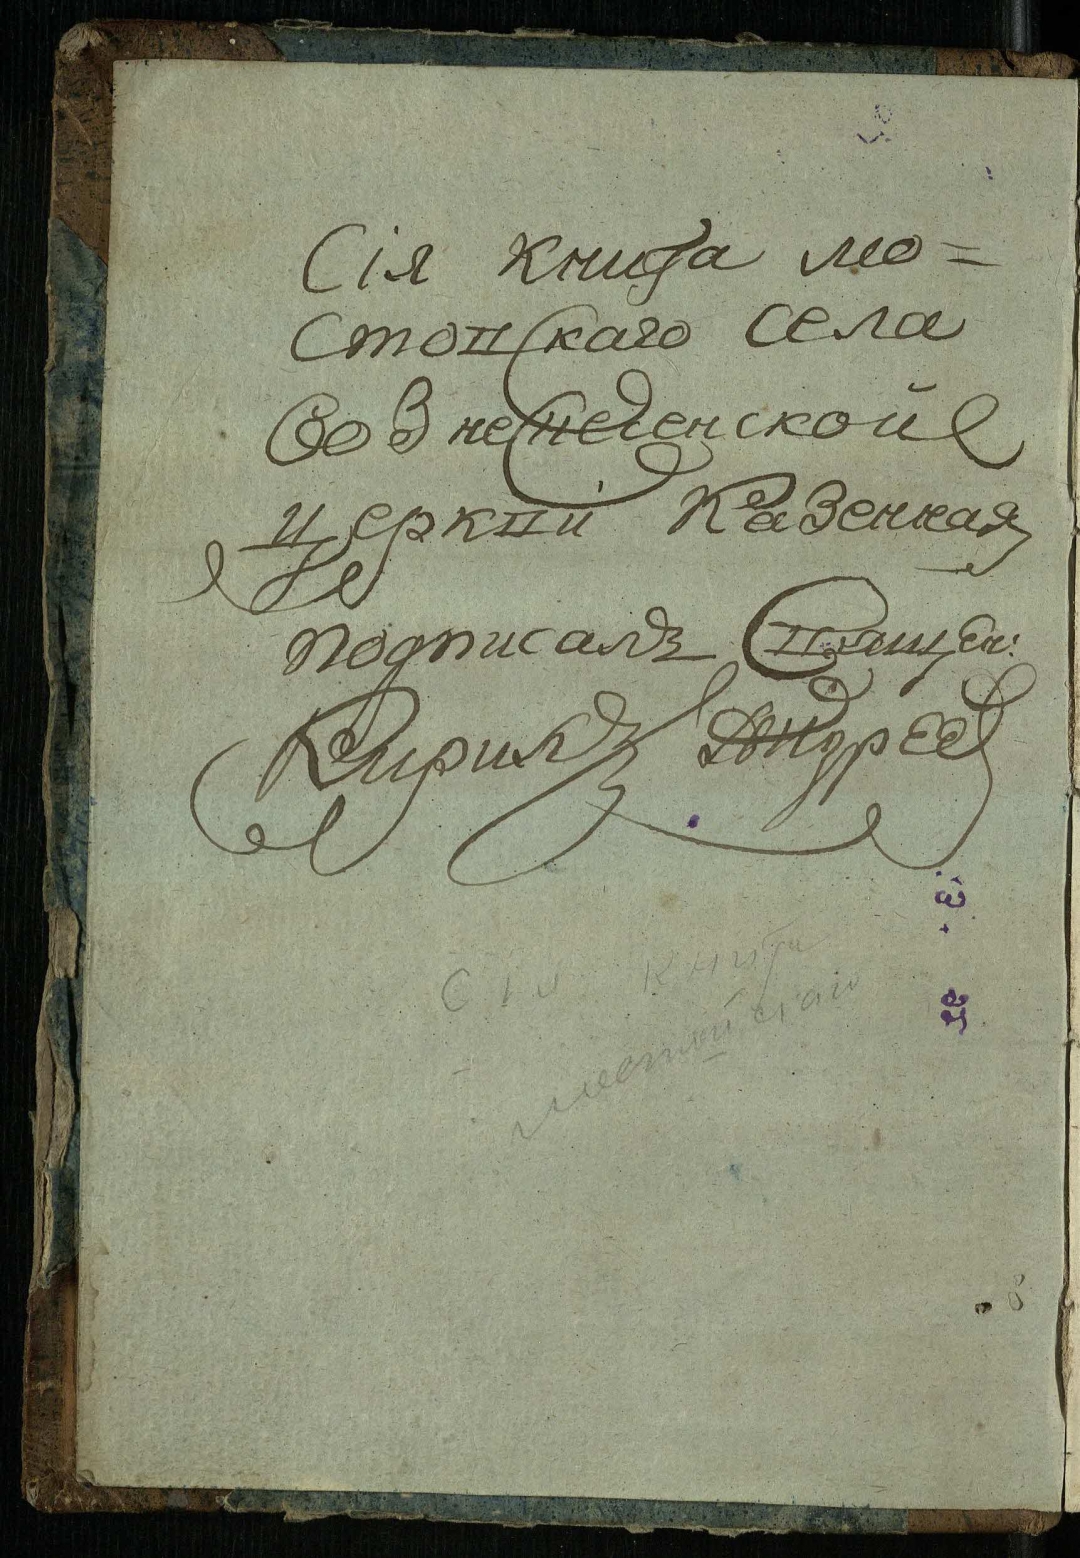 Сія книга мо=
стовскаго села
Вознеседенской
церкви Казенная
подписалъ Священ:
Кирилъ Андрее
Сія книга